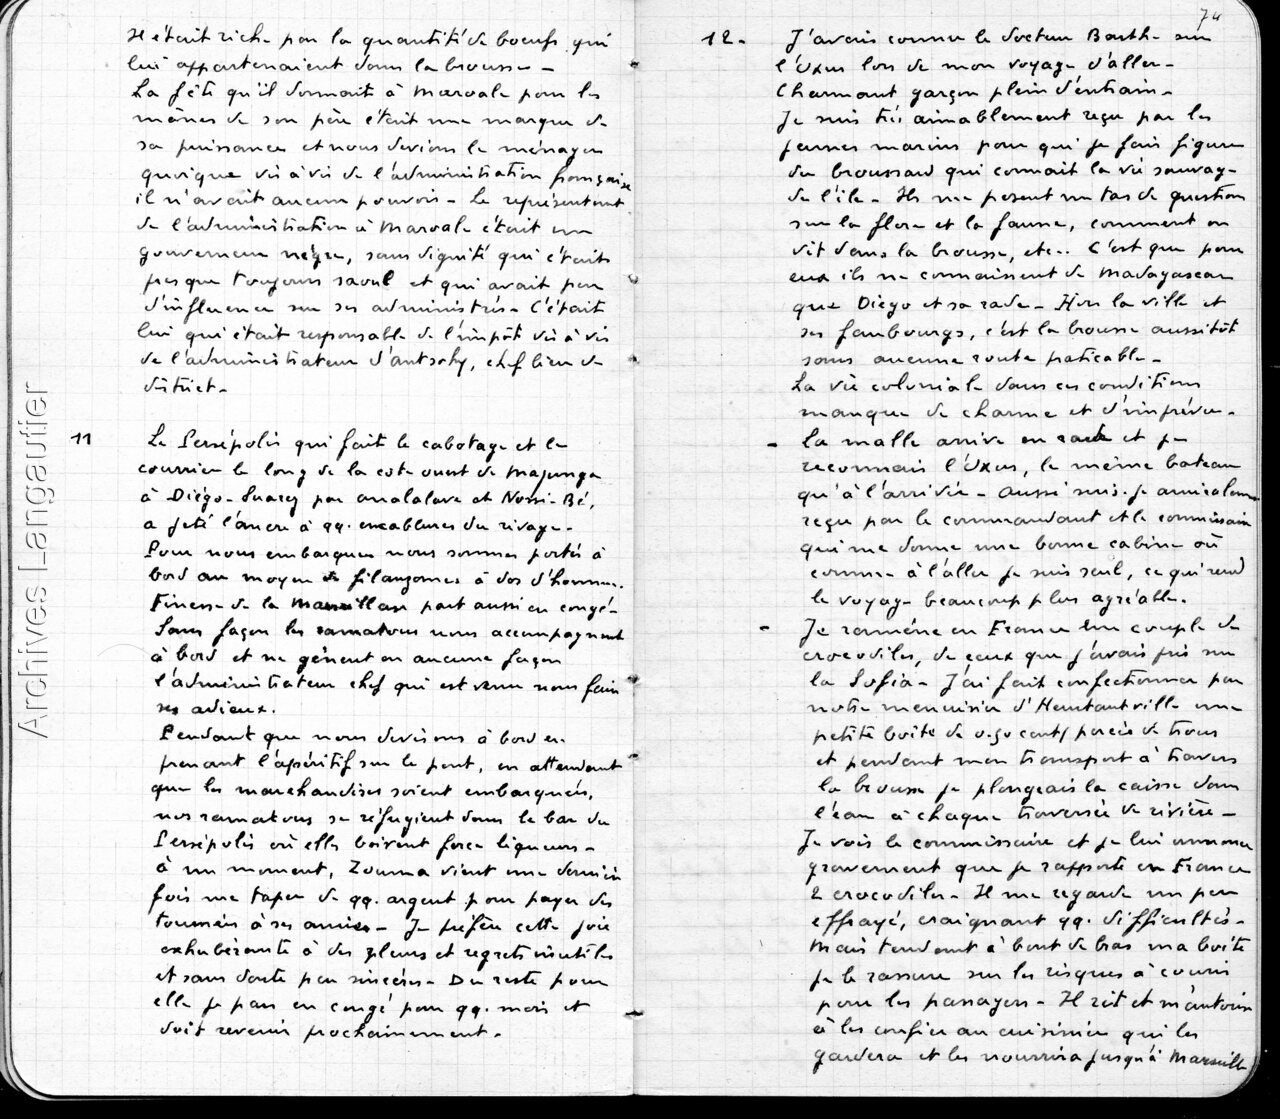 Il était riche par la quantité de boeufs qui
lui appartenaient dans la brousse -
La fête qu'il donnait à Maroala pour les
mânes de son père était une marque de
sa puissance et nous devions le ménager
quoique vis à vis de l'administration française
il n'avait aucun pouvoir - Le représentant
de l'administration à Maroala était un
gouverneur nègre, sans dignité qui était
presque toujours saoul et qui avait peu
d'influence sur ses administrés - C'était
lui qui était responsable de l'impôt vis à vis
de l'administrateur d'Antsohy, chef lieu de
district -
11 Le Persépolis qui fait le cabotage et le
courrier le long de la cote ouest de Majunga
à Diégo-Suarez par Analalave et Nossi-Bé,
a jeté l'ancre à qq. encablures du rivage -
Pour nous embarquer nous sommes portés à
bord au moyen de filanzanes à dos d'homme.
Finesse de la Marseillaise part aussi en congé -
Sans façon les ramatous nous accompagnent
à bord et ne gênent en aucune façon
l'administrateur chef qui est venu nous faire
ses adieux.
Pendant que nous devisons à bord en
prenant l'apéritif sur le pont, en attendant
que les marchandises soient embarquées,
nos ramatous se réfugient dans le bar du
Persépolis où elles boivent force liqueurs -
à un moment, Zouma vient une dernière
fois me taper de qq. argent pour payer des
tournées à ses amies - Je préfère cette joie
exhubérante à des pleurs et regrets inutiles
et sans doute peu sincères - Du reste pour
elle je pars en congé pour qq. mois et
doit revenir prochainement -
74
12 - J'avais connu le docteur Barthe sur
l'Oxus lors de mon voyage d'aller -
Charmant garçon plein d'entrain -
Je suis très aimablement reçu par les
jeunes marins pour qui je fais figure
du broussard qui connait la vie sauvage
de l'île - Ils me posent un tas de questions
sur la flore et la faune, comment on
vit dans la brousse, etc.. C'est que pour
eux ils ne connaissent de Madagascar
que Diégo et sa rade - Hors la ville et
ses faubourgs, c'est la brousse aussitôt
sans aucune route praticable -
La vie coloniale dans ces conditions
manque de charme et d'imprévu -
- La malle arrive en rade et je
reconnais l'Oxus, le même bateau
qu'à l'arrivée - Aussi suis-je amicalement
reçu par le commandant et le commissaire
qui me donne une bonne cabine où
comme à l'aller je suis seul, ce qui rend
le voyage beaucoup plus agréable.
- Je ramène en France un couple de
crocodiles, de ceux que j'avais pris sur
la Sofia - J'ai fait confectionner par
notre menuisier d'Heurtautville une
petite boite de 0.50 cent/ percée de trous
et pendant mon transport à travers
la brousse je plongeais la caisse dans
l'eau à chaque traversée de rivière -
Je vois le commissaire et je lui annonce
gravement que je rapporte en France
2 crocodiles - Il me regarde un peu
effrayé, craignant qq. difficultés -
Mais tendant à bout de bras ma boite
je le rassure sur les risques à courir
pour les passagers - Il rit et m'autorise
à les confier au cuisinier qui les
gardera et les nourrira jusqu'à Marseille
Archives Langautier